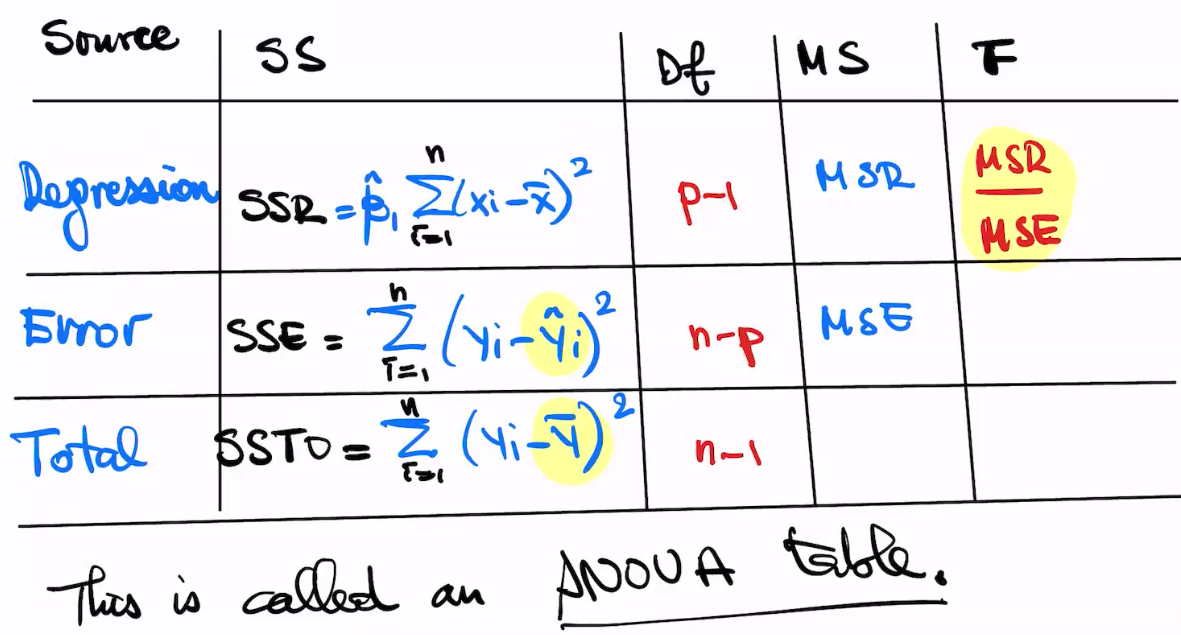 Source SS Df MS F
Regression SSR = β̂₁ Σⁿᵢ₌₁ (xi - x̄)² p-1 MSR MSR/MSE
Error SSE = Σⁿᵢ₌₁ (yi - ŷi)² n-p MSE
Total SSTO = Σⁿᵢ₌₁ (yi - ȳ)² n-1
This is called an ANOVA table.